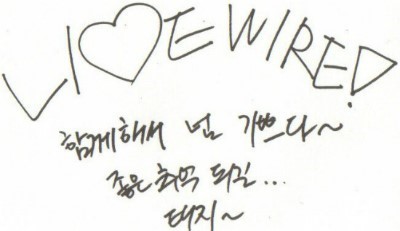 LI♡EWIRED!
함께해서 넘 기쁘다~
좋은 추억 되길...
태지~